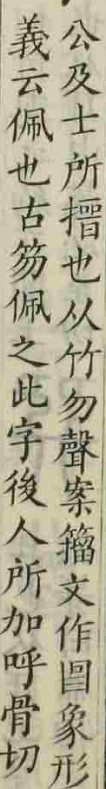 公及士所搢也从竹勿聲案籒文作囬象形
義云佩也古笏佩之此字後人所加呼骨切